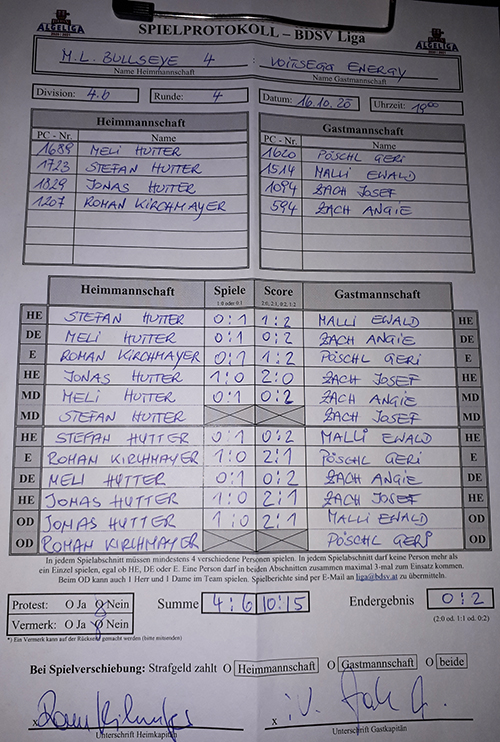 ALGELIGA SPIELPROTOKOLL – BDSV Liga ALGELIGA
M.L. BULLSEYE 4 : VOITSEGG ENERGY
Name Heimmannschaft Name Gastmannschaft
Division: 4.b Runde: 4 Datum: 16.10.20 Uhrzeit: 19⁰⁰
Heimmannschaft Gastmannschaft
PC - Nr. Name PC - Nr. Name
1689 MELI HUTTER 1620 PÖSCHL GERI
1723 STEFAN HUTTER 1514 MALLI EWALD
1829 JONAS HUTTER 1094 ZACH JOSEF
1207 ROMAN KIRCHMAYER 594 ZACH ANGIE
Heimmannschaft Spiele Score Gastmannschaft
1:0 oder 0:1 2:0, 2:1, 0:2, 1:2
HE STEFAN HUTTER 0:1 1:2 MALLI EWALD HE
DE MELI HUTTER 0:1 0:2 ZACH ANGIE DE
E ROMAN KIRCHMAYER 0:1 1:2 PÖSCHL GERI E
HE JONAS HUTTER 1:0 2:0 ZACH JOSEF HE
MD MELI HUTTER 0:1 0:2 ZACH ANGIE MD
MD STEFAN HUTTER ZACH JOSEF MD
HE STEFAN HUTTER 0:1 0:2 MALLI EWALD HE
E ROMAN KIRCHMAYER 0:1 2:1 PÖSCHL GERI E
DE MELI HUTTER 0:1 0:2 ZACH ANGIE DE
HE JONAS HUTTER 1:0 2:1 ZACH JOSEF HE
OD JONAS HUTTER 1:0 2:1 MALLI EWALD OD
OD ROMAN KIRCHMAYER PÖSCHL GERI OD
In jedem Spielabschnitt müssen mindestens 4 verschiedene Personen spielen. In jedem Spielabschnitt darf keine Person mehr als
ein Einzel spielen, egal ob HE, DE oder E. Eine Person darf in beiden Abschnitten zusammen maximal 3-mal zum Einsatz kommen.
Beim OD kann auch 1 Herr und 1 Dame im Team spielen. Spielberichte sind per E-Mail an liga@bdsv.at zu übermitteln.
Protest: O Ja O Nein Summe 4:6 10:15 Endergebnis 0:2
Vermerk: O Ja O Nein (2:0 od. 1:1 od. 0:2)
*) Ein Vermerk kann auf der Rückseite gemacht werden (bitte mitsenden)
Bei Spielverschiebung: Strafgeld zahlt O Heimmannschaft O Gastmannschaft O beide
x x i.V.
Unterschrift Heimkapitän Unterschrift Gastkapitän